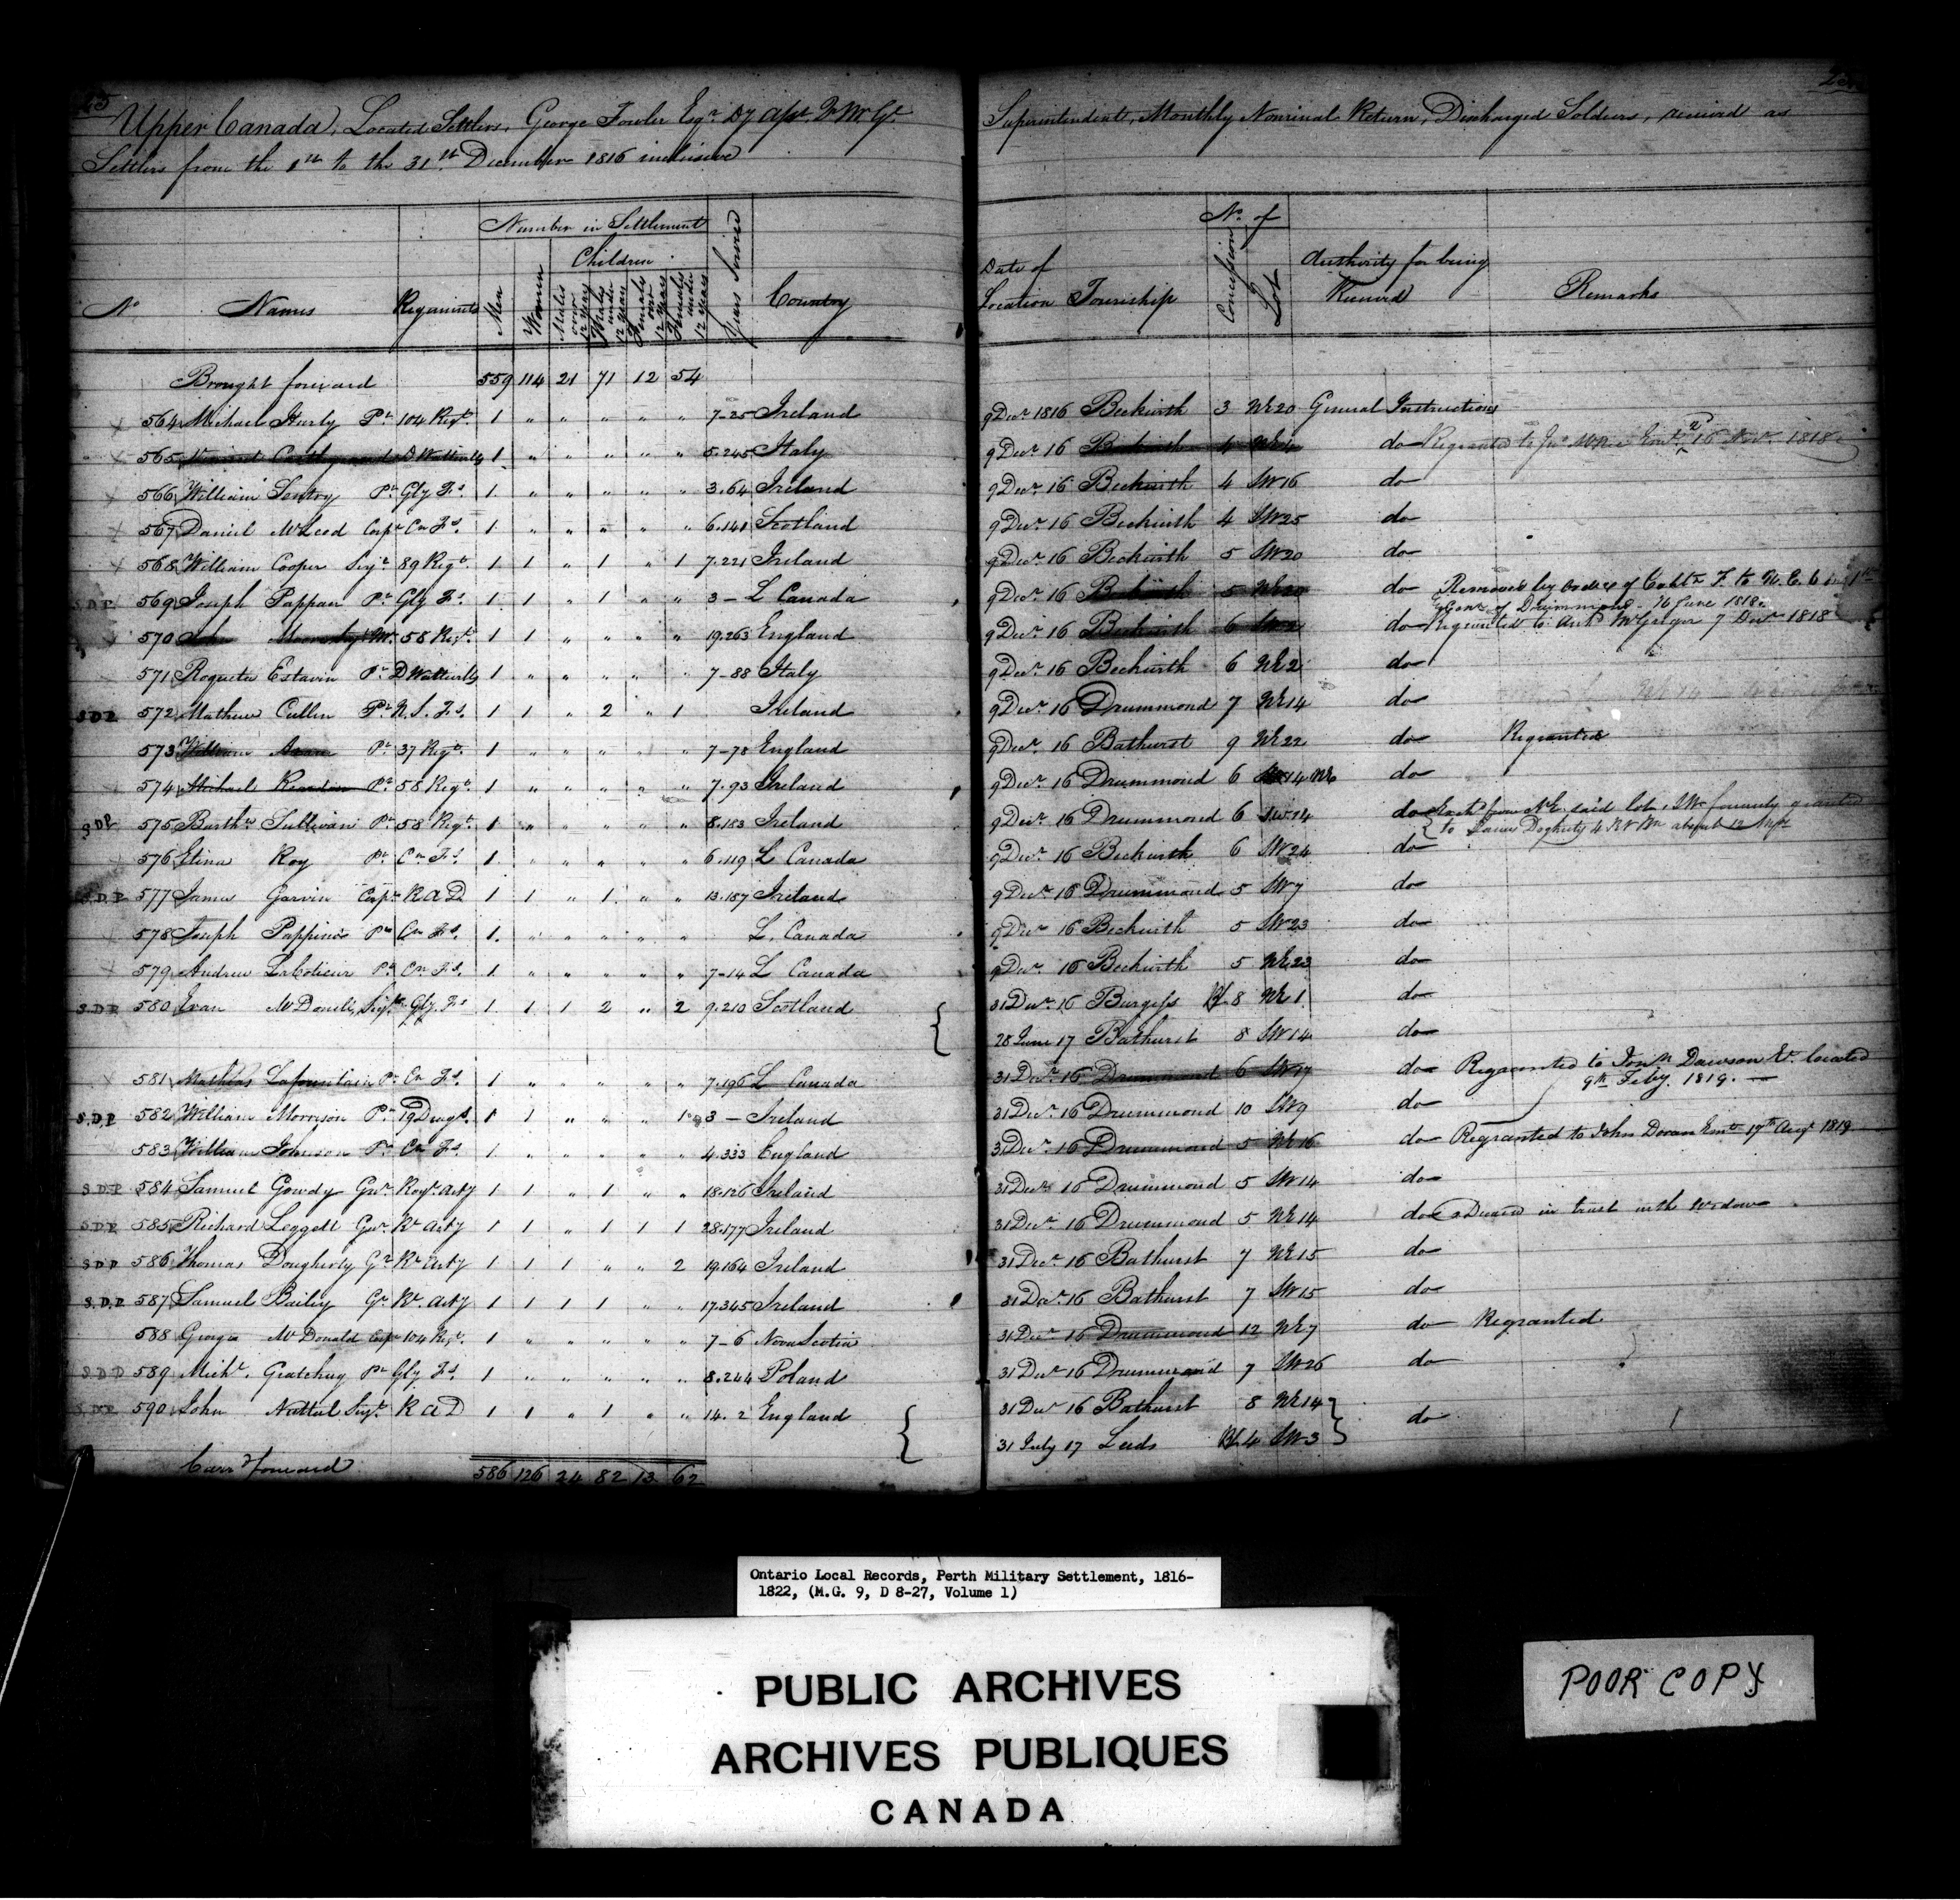 25
Upper Canada, Located Settlers, George Fowler Esqr. Dy Asst. Qr Mr Gl. Superintendent, Monthly Nominal Return, Discharged Soldiers, received as
Settlers from the 1st to the 31st December 1816 inclusive
No Names Regiments Number in Settlement Men Women Children Males over 12 years Males under 12 years Females over 12 years Females under 12 years Years Served Country Date of Location Township No. of Concession Lot Authority for being Received Remarks
Brought forward 559 114 21 71 12 54
564 Michael Hurly Pt 104 Regt. 1 " " " " " 7-25 Ireland 9 Decr. 1816 Beckwith 3 NE 20 General Instructions
565 D Wattevills 1 " " " " " 5.245 Italy 9 Decr. 16 Beckwith 4 do Regranted to 16 Novr. 1818
566 William Pt Gly Fs. 1 " " " " " 3.64 Ireland 9 Decr. 16 Beckwith 4 SW 16 do
567 Daniel McLeod Corpl Cn Fs. 1 " " " " " 6.141 Scotland 9 Decr. 16 Beckwith 4 SW 25 do
568 William Cooper Serjt 89 Regt. 1 1 " 1 " 1 7.221 Ireland 9 Decr. 16 Beckwith 5 SW 20 do
S.D.P. 569 Joseph Pappan Pt Gly Fs. 1 1 " 1 " " 3 - L Canada 9 Decr. 16 Beckwith 5 NE 20 do Removed by order of Cobbn F. to
of Drummond - 16 June 1818.
570 John 58 Regt. 1 1 " " " " 19.263 England 9 Decr. 16 Beckwith 6 do Regranted to Archd McGregor 7 Decr 1818
571 Roquetu Estavin Pt D Wattevills 1 " " " " " 7-88 Italy 9 Decr. 16 Beckwith 6 NE 2 do
SDP 572 Mathew Cullen Pt N.S. Fs. 1 1 " 2 " 1 Ireland 9 Decr. 16 Drummond 7 NE 14 do
573 William Pt 37 Regt. 1 " " " " " 7-78 England 9 Decr. 16 Bathurst 9 NE 22 do Regranted
574 Michael Reardon Pt 58 Regt. 1 " " " " " 7.93 Ireland 9 Decr. 16 Drummond 6 14 NE do
SDP 575 Barthw Sullivan Pt 58 Regt. 1 " " " " " 8.183 Ireland 9 Decr. 16 Drummond 6 SW 14 do from NE said lot, SW formerly granted
to Dogherty absent 12
576 Etina Roy Pt Cn Fs. 1 " " " " " 6.119 L Canada 9 Decr. 16 Beckwith 6 SW 24 do
S.D.P. 577 James Garvin Corpl R A D 1 1 " 1 " " 13.187 Ireland 9 Decr. 16 Drummond 5 SW 7 do
578 Joseph Pappino Pt Cn Fs. 1 " " " " " L. Canada 9 Decr. 16 Beckwith 5 SW 23 do
579 Andrew LaCoticur Pt Cn Fs. 1 " " " " " 7-14 L Canada 9 Decr. 16 Beckwith 5 NE 23 do
S.D.P. 580 Evan McDonell Serjt Gly Fs 1 1 1 2 " 2 9.210 Scotland 31 Decr. 16 Burgess 8 NE 1 do
28 June 17 Bathurst 8 SW 14 do
581 Mathias Lafountain Pt Cn Fs. 1 " " " " " 7.196 L Canada 31 Decr. 16 Drummond 6 SW 17 do Regranted to Dawson Et. located
9th Feby. 1819.
S.D.P 582 William Morrison Pt 19 Drags. 1 1 " " " 1 3 - Ireland 31 Decr. 16 Drummond 10 SW 9 do
583 William Johnson Pt Cn Fs. 1 " " " " " 4.333 England 31 Decr. 16 Drummond 5 NE 16 do Regranted to John Doran Emt 17th Augt 1819
S.D.P 584 Samuel Gowdy Gnr Royl Arty 1 1 " 1 " " 18.126 Ireland 31 Decr. 16 Drummond 5 SW 14 do
S.D.P. 585 Richard Leggett Gnr Rl Arty 1 1 " 1 1 1 28.177 Ireland 31 Decr. 16 Drummond 5 NE 14 do in trust with the Widow
S.D.P 586 Thomas Dougherty Gr Rl Arty 1 1 1 " " 2 19.164 Ireland 31 Decr. 16 Bathurst 7 NE 15 do
S.D.P 587 Samuel Bailey Gr Rl Arty 1 1 1 1 " " 17.345 Ireland 31 Decr. 16 Bathurst 7 SW 15 do
588 George McDonald Corpl 104 Regt. 1 " " " " " 7-6 Nova Scotia 31 Decr. 16 Drummond 12 NE 7 do Regranted
S.D.D 589 Michl. Gratchuy Pt Gly Fs. 1 " " " " " 8.244 Poland 31 Decr. 16 Drummond 7 SW 26 do
590 John Nuttul Serjt. R A D 1 1 " 1 " " 14.2 England 31 Decr 16 Bathurst 8 NE 14 do
31 July 17 Leeds 4 SW 3
Carrd forward 586 126 24 82 13 62
Ontario Local Records, Perth Military Settlement, 1816-
1822, (M.G. 9, D 8-27, Volume 1)
PUBLIC ARCHIVES
ARCHIVES PUBLIQUES
CANADA
POOR COPY